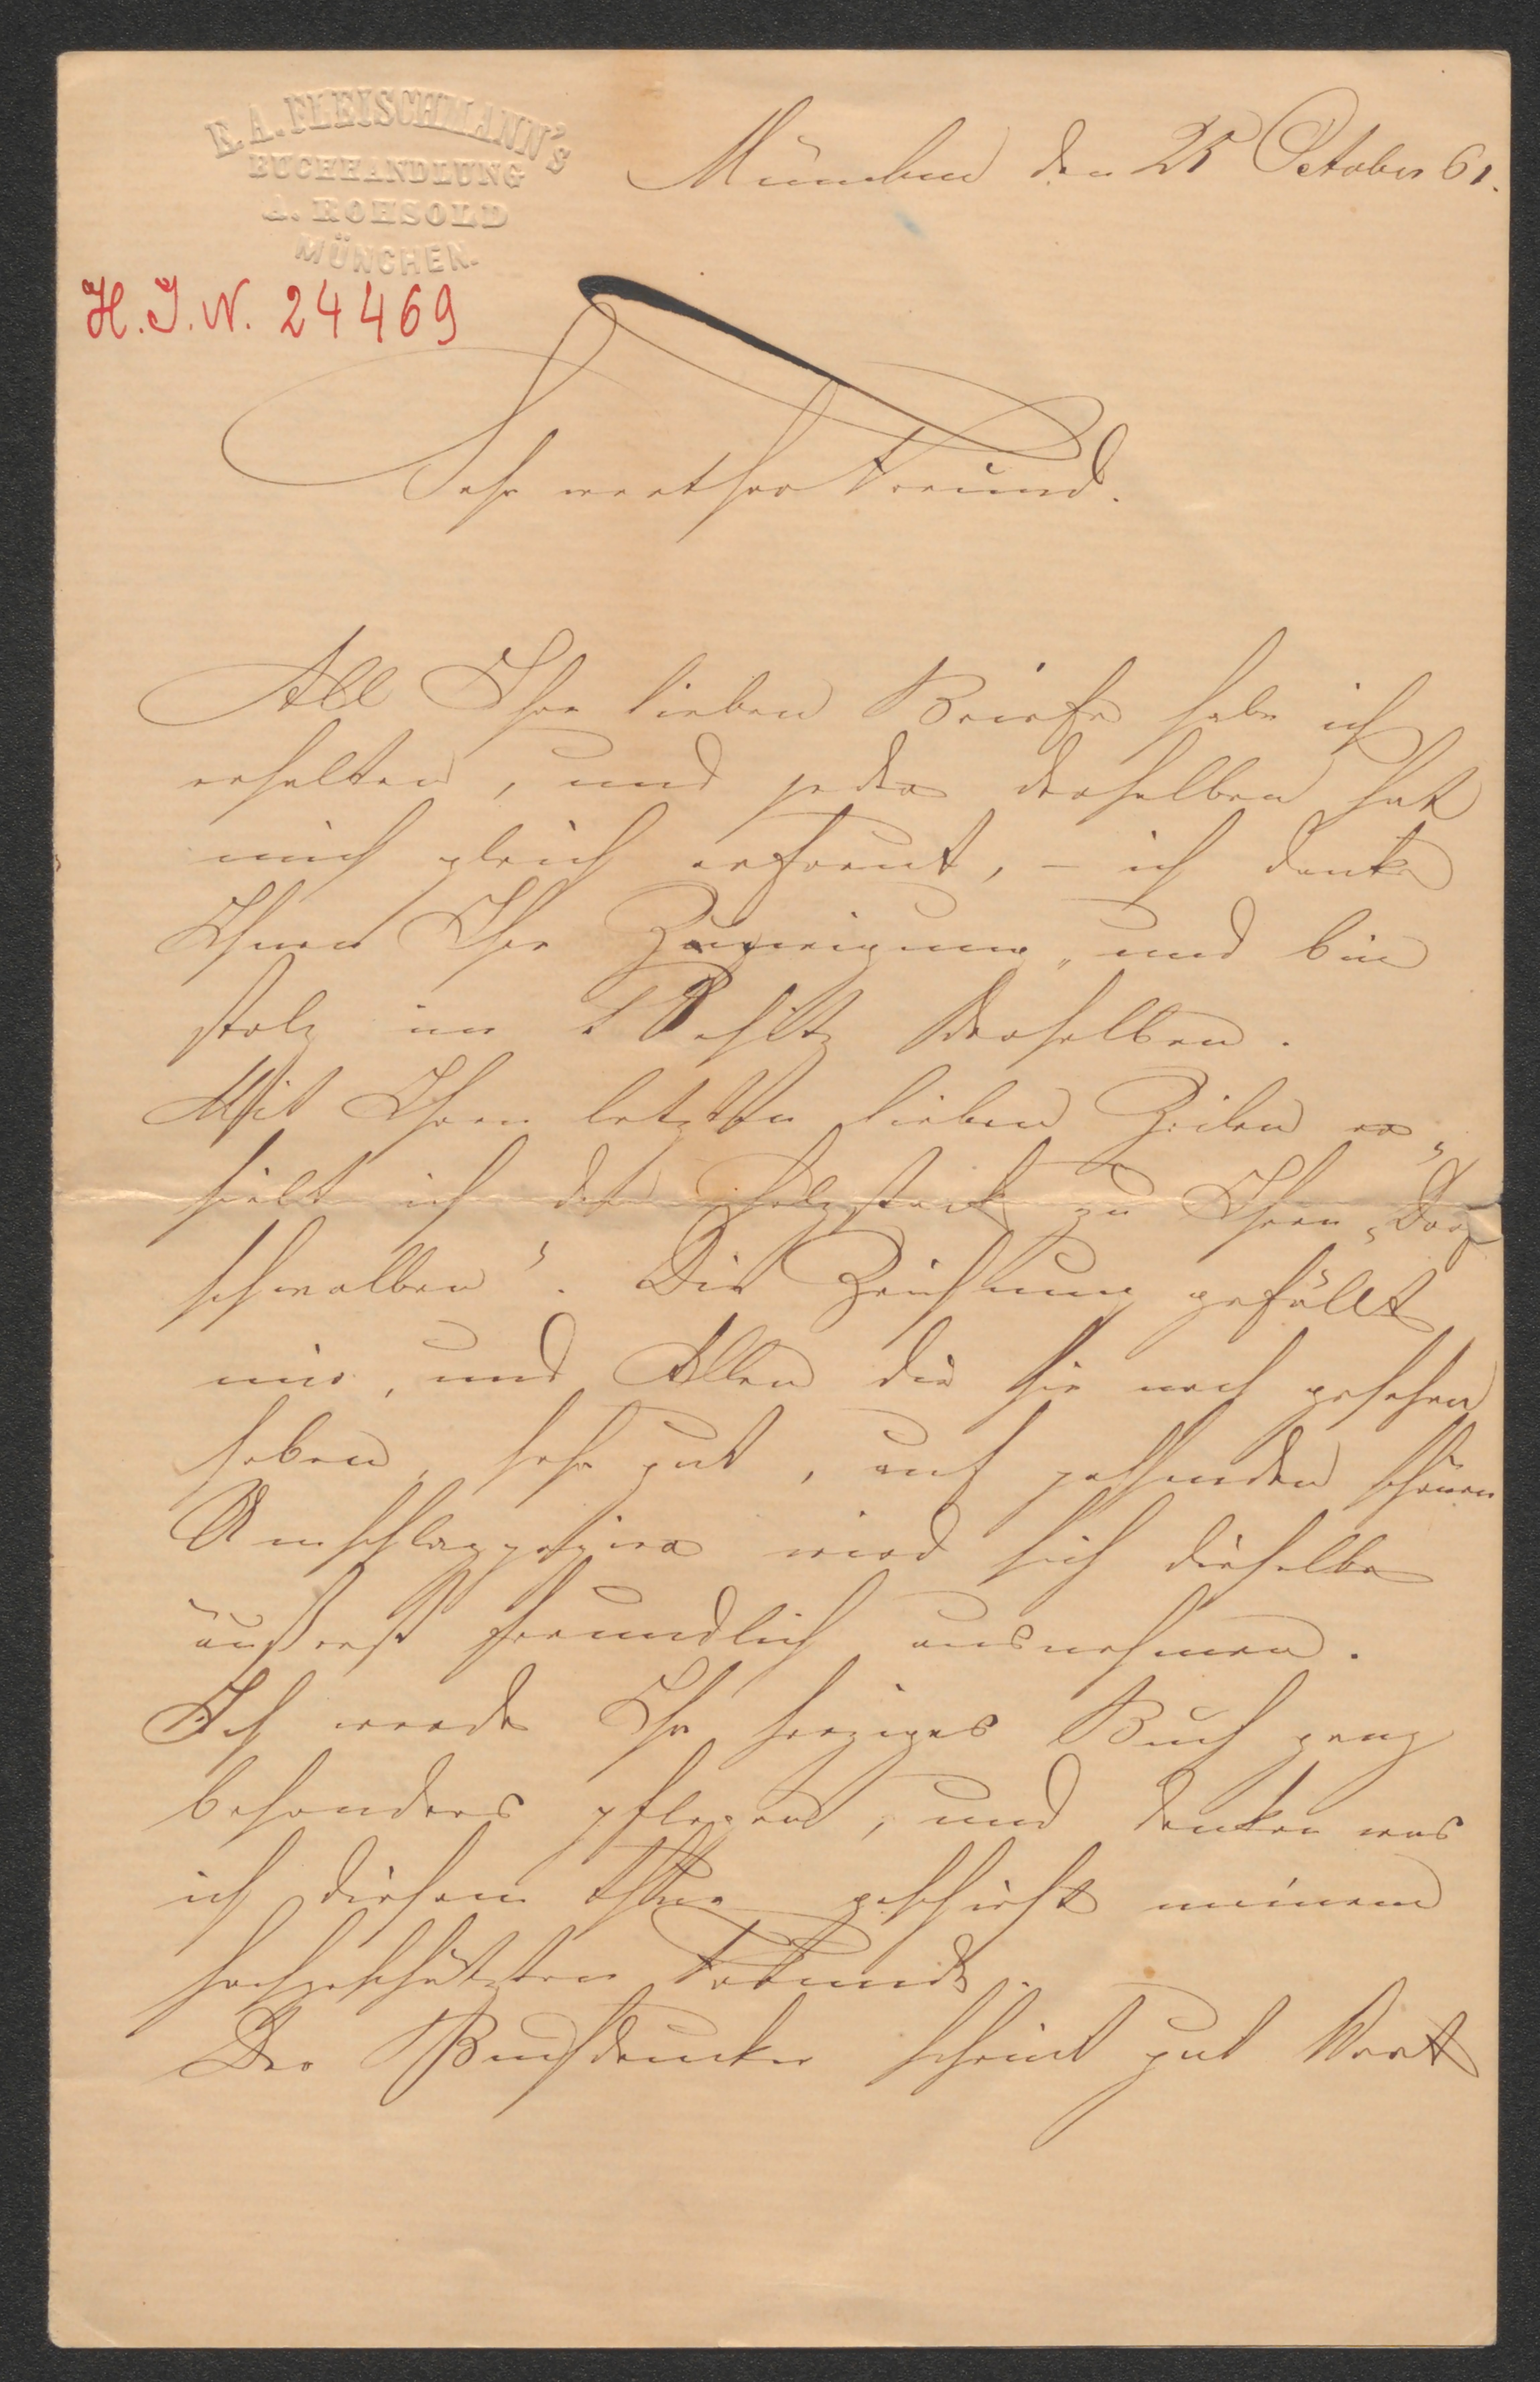 E. A. FLEISCHMANN'S
BUCHHANDLUNG
A. ROHSOLD
MÜNCHEN.
München den 25 October 61.
H. I. N. 24469
Sehr werther Freund.
All Ihre lieben Briefe habe ich
erhalten, und jeder derselben hat
mich gleich erfreut, – ich danke
Ihnen Ihre Zuneigung, und bin
stolz im Besitz derselben.
Mit Ihren letzten lieben Zeilen er„
hielt ich den Holzstock zu Ihren „Dorf
schwalben". Die Zeichnung gefällt
mir, und Allen die sie noch gesehen
haben, sehr gut, auf passenden schönen
Umschlagpapier wird sich dieselbe
äußerst freundlich ausnehmen.
Ich werde Ihr herziges Buch ganz
besonders pflegen, und denken was
ich diesem thue geschieht meinem
hochgeschätzten Freunde.
Der Buchdrucker scheint gut Wort